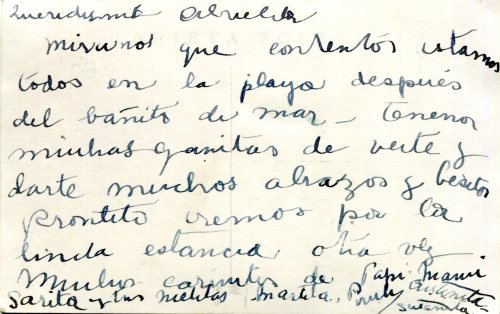 Queridísima Abuelita
miranos que contentos estamos
todos en la playa después
del bañito de mar - tenemos
muchas ganitas de verte y
darte muchos abrazos y besitos
prontito iremos por la
linda estancia otra vez
Muchos cariñitos de Papi Mami
Sarita y tus nietitas - Martita,